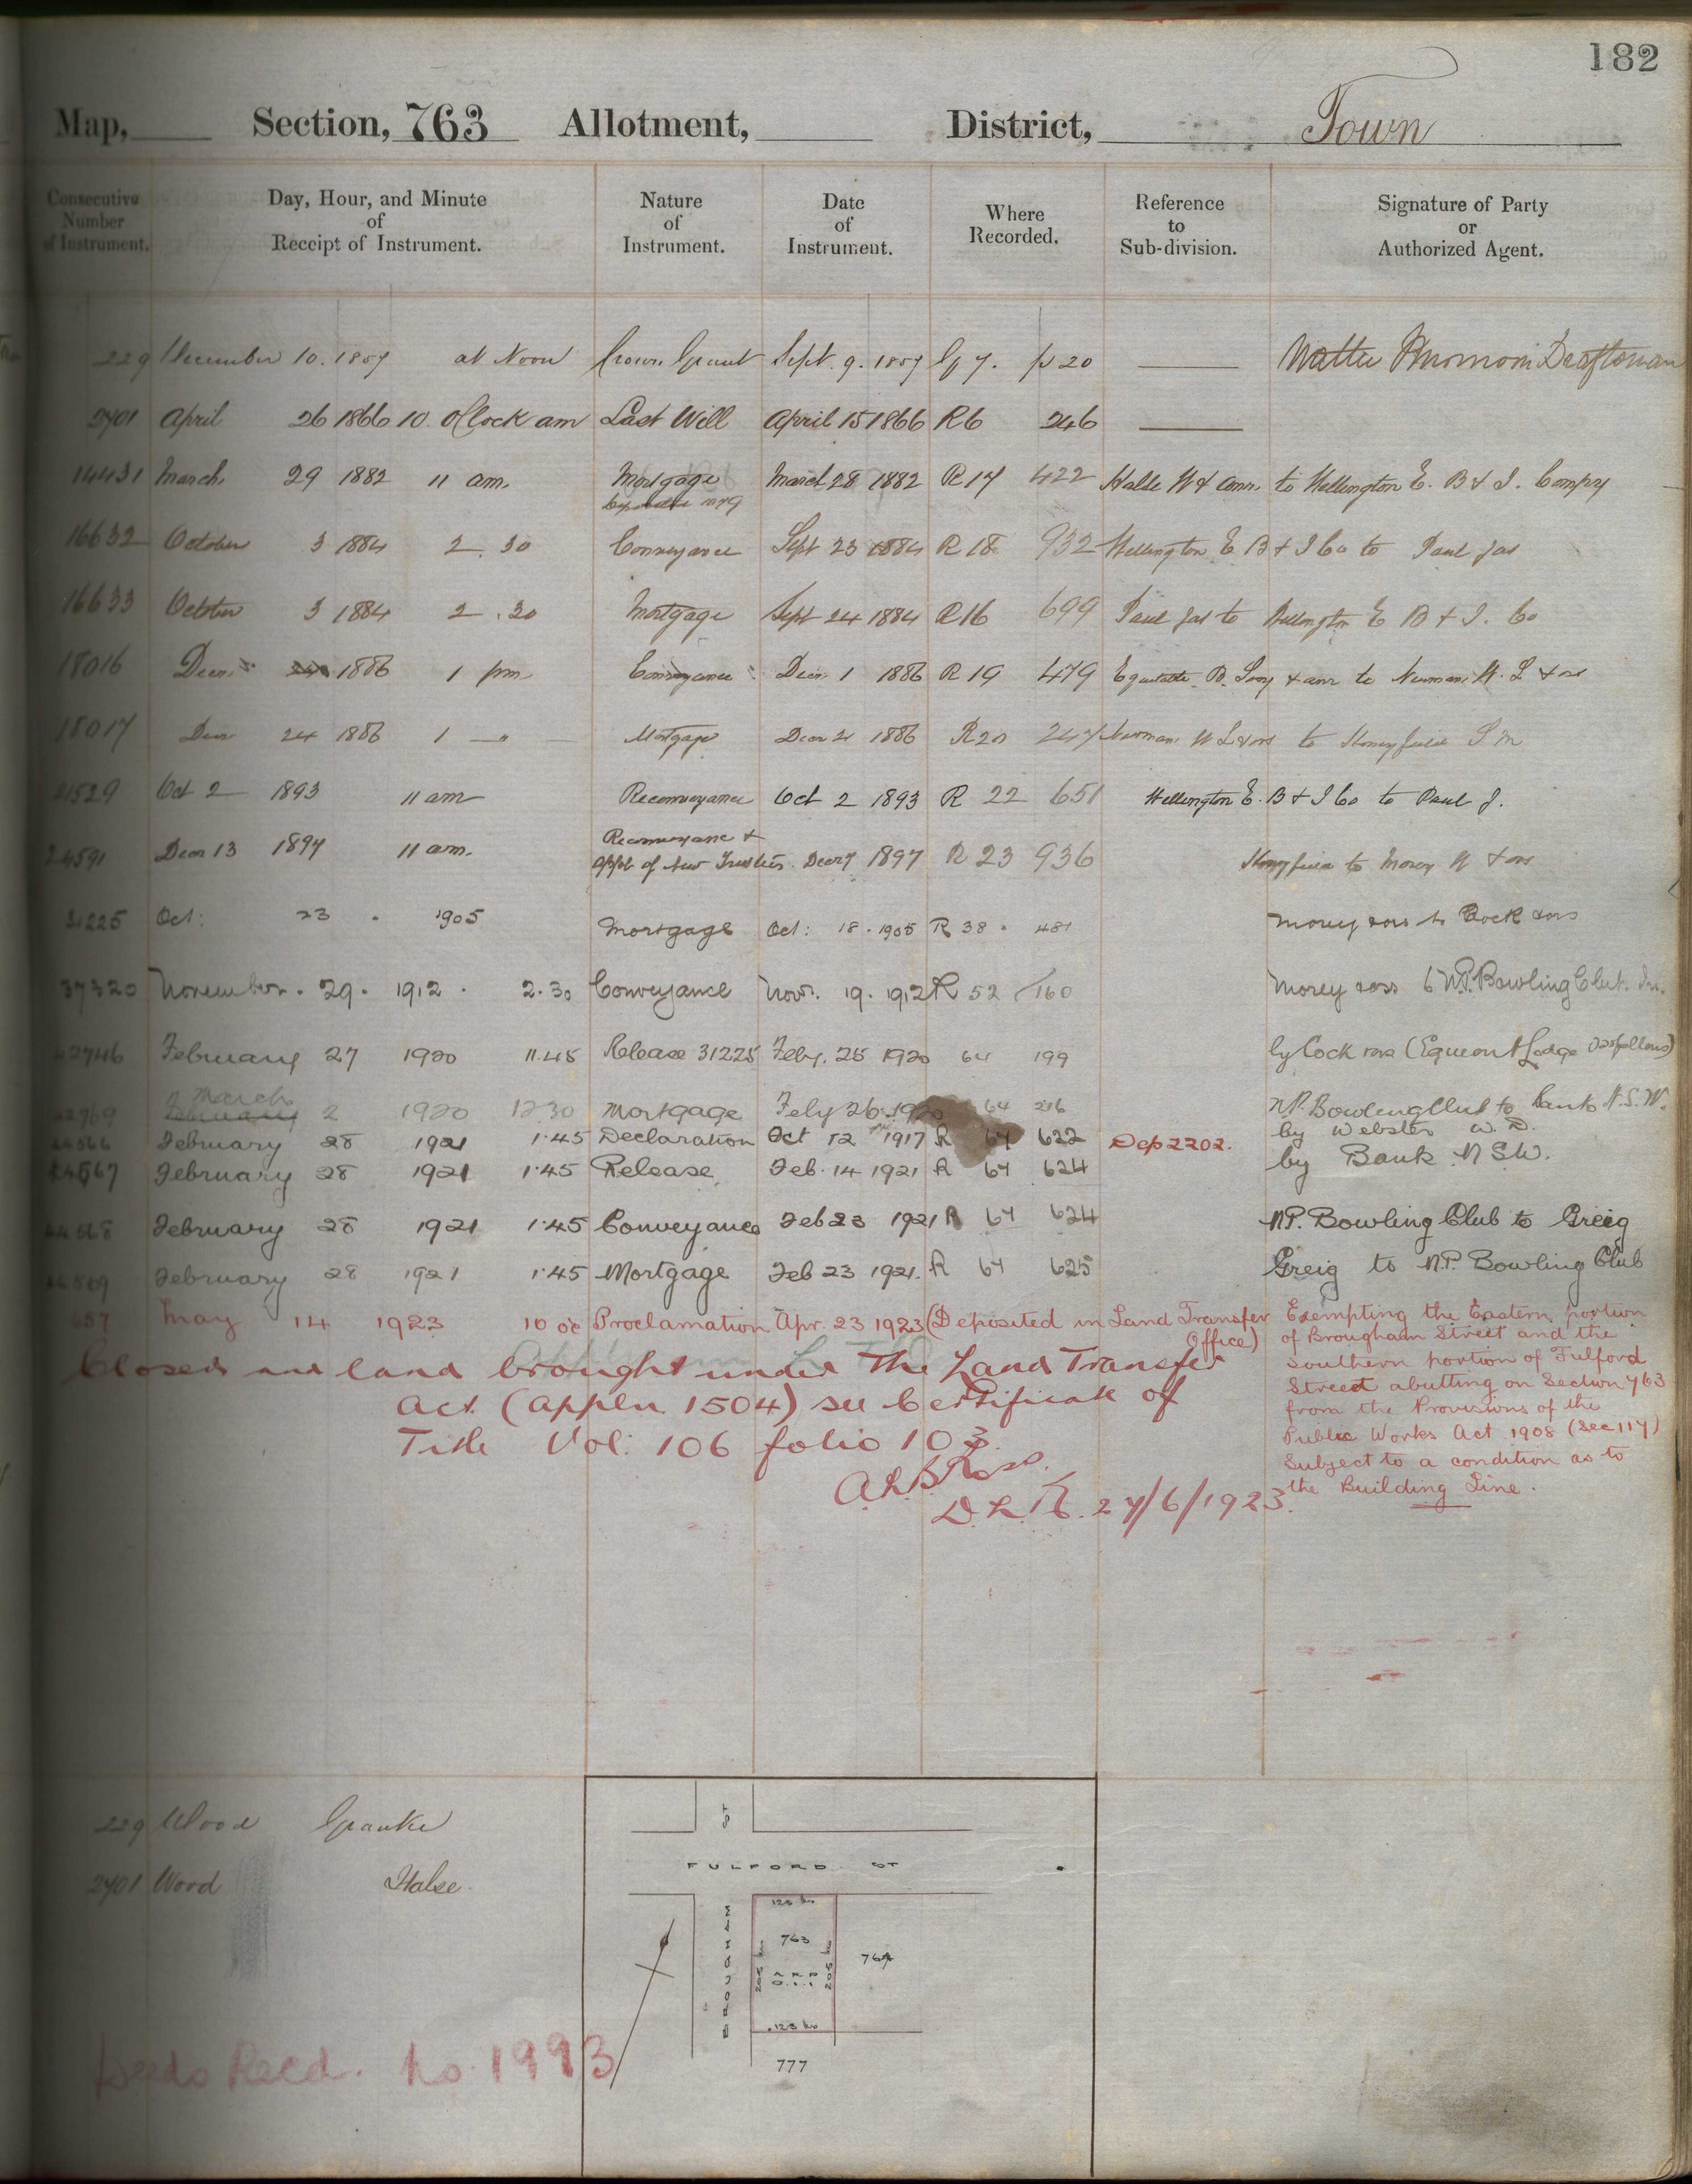 182
Map, Section, 763 Allotment, District, Town
Consecutive Number of Instrument. Day, Hour, and Minute of Receipt of Instrument. Nature of Instrument. Date of Instrument. Where Recorded. Reference to Sub-division. Signature of Party or Authorized Agent.
229 December 10. 1857 at Noon Crown Grant Sept. 9. 1857 G 7. p 20 Draftsman
2701 April 26 1866 10 O'Clock am Last Will April 15 1866 R6 246
14431 March 29 1882 11 am. Mortgage March 28 1882 R 17 422 Halse W & anr. to Wellington E. B & I. Compy
16632 October 3 1884 2. 30 Conveyance Sept 23 1884 R 18 932 Wellington E B & I Co to Paul Jas
16633 October 3 1884 2. 30 Mortgage Sept 24 1884 R16 699 Paul Jas to Wellington E B & I. Co
18016 Decr 24 1886 1 pm Conveyance Decr 1 1886 R 19 479 Equitable B. Socy & anr to Newman W. L & ors
18017 Decr 24 1886 1 Mortgage Decr 21 1886 R20 247 Newman W L & ors to Honeyfield S M
21529 Oct 2 1893 11 am Reconveyance Oct 2 1893 R 22 651 Wellington E. B & I Co to Paul J.
24591 Decr 13 1897 11 am. Reconveyance &
Appt of New Trustees Decr 7 1897 R 23 936 Honeyfield to Morey W & ors
31225 Oct: 23 . 1905 Mortgage Oct: 18. 1905 R 38. 481 Morey & ors to Cock & ors
37320 November. 29. 1912. 2.30 Conveyance Novr. 19. 1912 R 52 160 Morey & ors to N.P. Bowling Club. In.
42746 February 27 1920 11.45 Release 31225 Feby. 25 1920 64 199 by Cock & ors (Egmont Lodge Oddfellows)
March
February 2 1920 12 30 Mortgage Feby 26. 1920 64 216 N.P. Bowling Club to Bank N.S.W.
44566 February 28 1921 1.45 Declaration Oct 12 1917 R 64 622 Dep 2202. by Webster W. D.
44567 February 28 1921 1.45 Release Feb. 14 1921 R 64 624 by Bank N S W.
44568 February 28 1921 1.45 Conveyance Feb 23 1921 R 64 624 N.P. Bowling Club to Greig
44569 February 28 1921 1.45 Mortgage Feb 23 1921. R 64 625 Greig to N.P. Bowling Club
657 May 14 1923 10 oc Proclamation Apr. 23 1923 (Deposited in Land Transfer Office)
Exempting the Eastern portion
of Brougham Street and the
southern portion of Fulford
Street abutting on Section 763
from the Provisions of the
Public Works Act 1908 (Sec 117)
Subject to a condition as to
the Building Line.
Closed and land brought under The Land Transfer
Act (Appln 1504) see Certificate of
Title Vol: 106 folio 103.
D.L.R. 27/6/1923.
229 Wood Grantee
2701 Wood Halse
ST
FULFORD ST
BROUGHAM
123 lks
763
205 lks
A R P
0. 1. 1
205 lks
123 lks
764
777
Deeds Recd. No. 1993